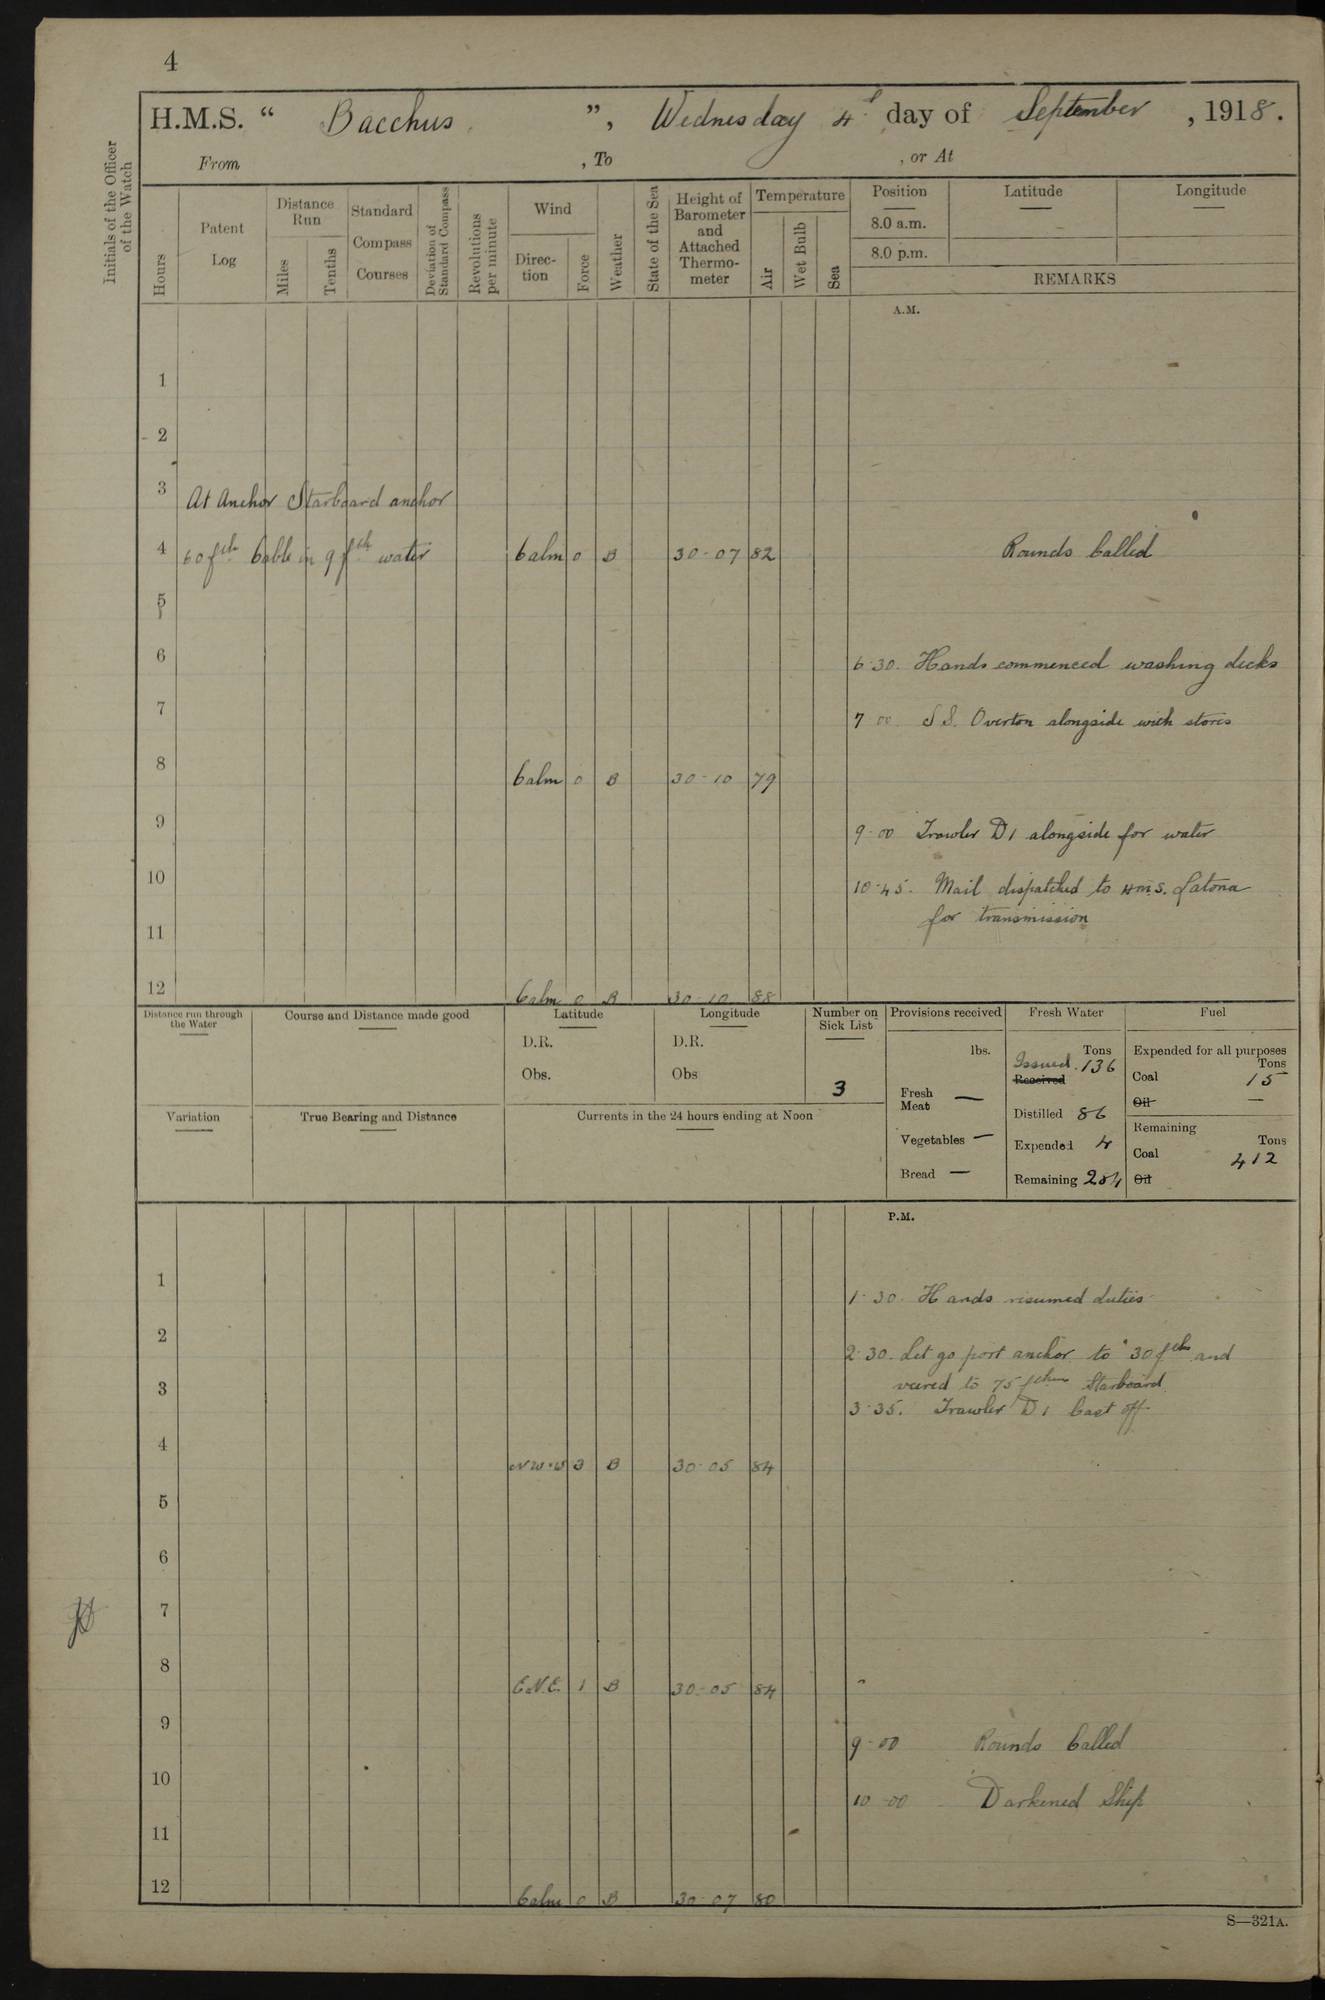 4
H.M.S. “ Bacchus ”, Wednesday 4th day of September, 1918.
From , To , or At
Initials of the Officer of the Watch
Hours
Patent Log
Distance Run
Miles
Tenths
Standard Compass Courses
Deviation of Standard Compass
Revolutions per minute
Wind
Direction
Force
Weather
State of the Sea
Height of Barometer and Attached Thermometer
Temperature
Air
Wet Bulb
Sea
Position Latitude Longitude
8.0 a.m.
8.0 p.m.
REMARKS
A.M.
1
2
3 At Anchor Starboard anchor
4 60 fth Cable in 9 fth water Calm 0 B 30-07 82 Rounds Called
5
6 6-30. Hands commenced washing decks
7 7-00 S.S. Overton alongside with stores
8 Calm 0 B 30-10 79
9 9-00 Trawler D1 alongside for water
10 10-45. Mail dispatched to H.M.S. Latona
for transmission
11
12 Calm 0 B 30-10 88
Distance run through the Water
Course and Distance made good
Latitude
D.R.
Obs.
Longitude
D.R.
Obs
Number on Sick List
3
Provisions received
lbs.
Fresh Meat —
Vegetables —
Bread —
Fresh Water
Tons
Issued 136
Received
Distilled 86
Expended 4
Remaining 254
Fuel
Expended for all purposes
Tons
Coal 15
Oil —
Remaining
Tons
Coal 412
Oil
Variation
True Bearing and Distance
Currents in the 24 hours ending at Noon
P.M.
1 1-30. Hands resumed duties
2 2-30. Let go port anchor to 30 fths and
veered to 75 fthms Starboard
3 3-35. Trawler D1 Cast off
4 NW·W 3 B 30-05 84
5
6
7
8 E.N.E. 1 B 30-05 84
9 9-00 Rounds Called
10 10-00 Darkened Ship
11
12 Calm 0 B 30-07 80
S—321A.